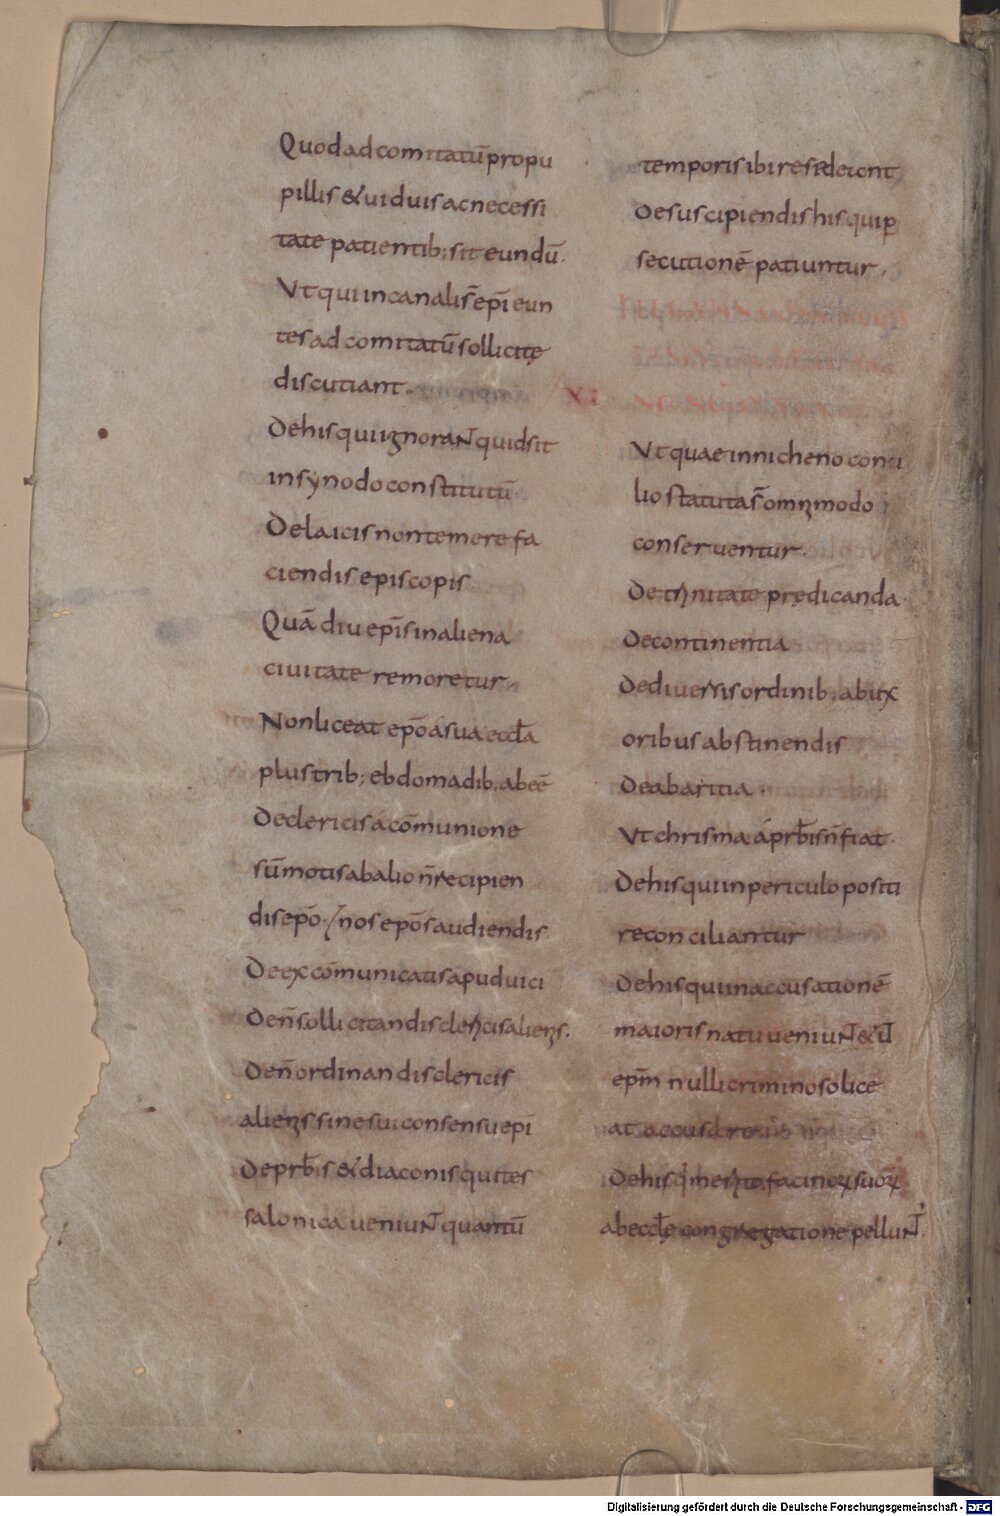 Quod ad comitatū propu
pillis & uiduis ac necessi
tate patientib; sit eundū.
Vt qui in canali s̄ ep̄i eun
tes ad comitatū sollicitę
discutiant.
De his qui ignoraNT quid sit
in synodo constitutū
De laicis non temere fa
ciendis episcopis
Quā diu ep̄i s in aliena
ciuitate remoretur.
Non liceat ep̄o a sua eccla
plus trib; ebdomadib; abeē
De clericis a cōmunione
sūmotis ab alio n̄ recipien
dis ep̄o
De excōmunicatis apud uici
De n̄ sollicitandis clericis alienis.
De n̄ ordinandis clericis
alienis sine sui consensu ep̄i
De prb̄is & diaconis qui tes
salonica ueniuNT quantū
temporis ibi resideient
De suscipiendis his qui ꝑ
secutionē patiuntur.
XI
Vt quae in nicheno conci
lio statuta s̄ omnimodo
conseruentur.
De trinitate prędicanda.
De continentia
De diuersis ordinib; ab ux
oribus abstinendis
De abaritia.
Vt chrisma a prb̄is n̄ fiat.
De his qui in periculo positi
reconciliantur
De his qui in accusationē
maioris natu ueniuNT & ut
ep̄m nulli criminoso lice
at accusare
De his q merito facinorꝝ suorꝝ
ab ecclę congregatione pelluNT.
Digitalisierung gefördert durch die Deutsche Forschungsgemeinschaft - DFG